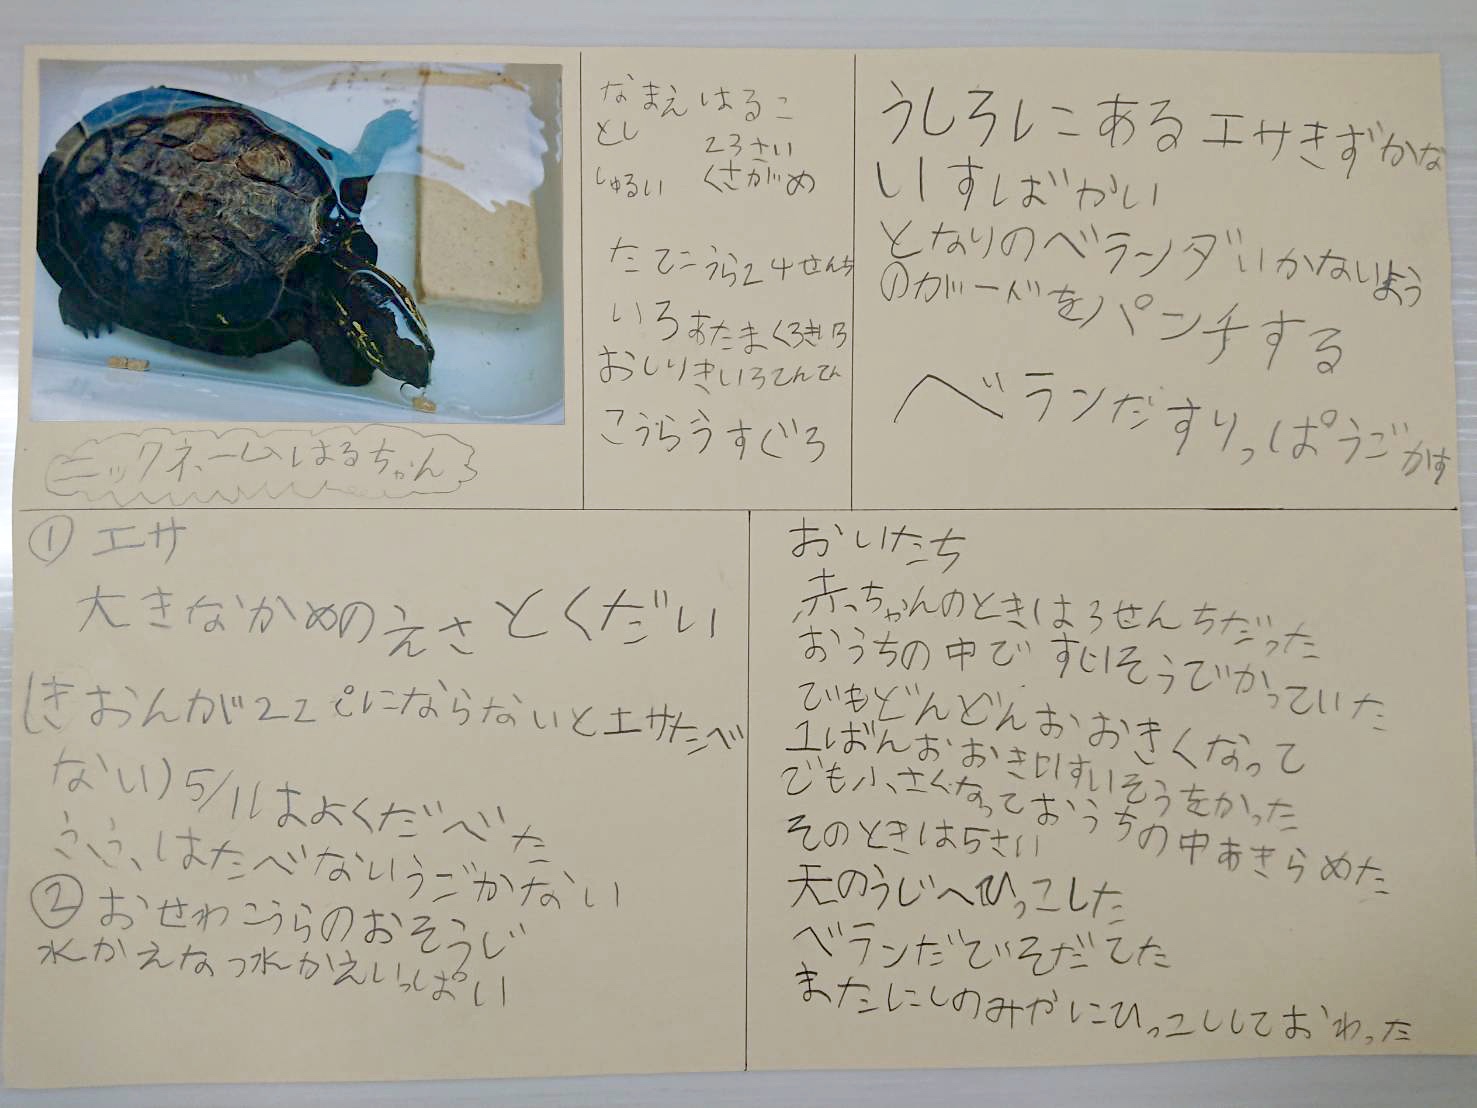 ニックネームはるちゃん
なまえ はるこ
とし 23さい
しゅるい くさがめ
たてこうら24せんち
いろあたまくろきいろ
おしりきいろてんてん
こうらうすぐろ
うしろにあるエサきずかな
いすばかい
となりのベランダいかないよう
のガードをパンチする
ベランだすりっぱうごかす
① エサ
大きなかめのえさ とくだい
しきおんが22℃にならないとエサたべ
ない) 5/11はよくだべた
ふゆはたべないうごかない
② おせわこうらのおそうじ
水かえなつ水かえいっぱい
おいたち
赤っちゃんのときは3せんちだった
おうちの中で すいそうでかっていた
でもどんどんおおきくなって
1ばんおおきいすいそうをかった
でも小さくなっておうちの中あきらめた
そのときは5さい
天のうじへひっこした
ベランだでそだてた
またにしのみやにひっこししておわった